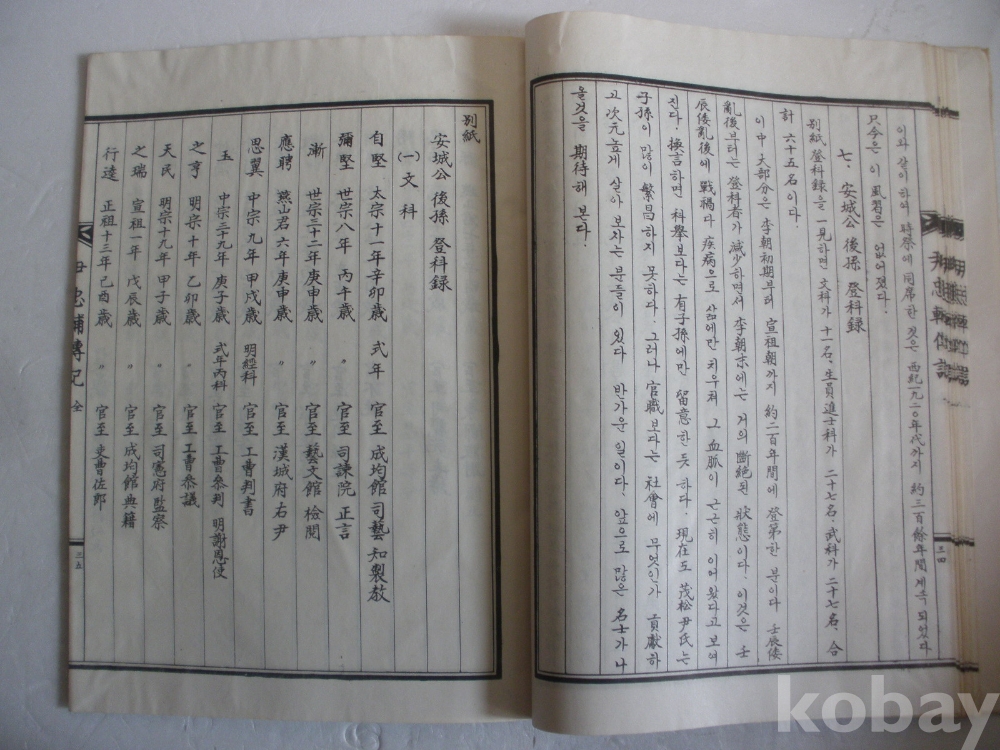 이와 같이 하여 時祭에 同席한 것은 西紀一九二○年代까지 約三百餘年間 계속 되었다
只今은 이 風習은 없어졌다.
七. 安城公 後孫 登科録
別紙登科録을 一見하면 文科가 十一名. 生員進士科가 二十七名. 武科가 二十七名. 合
計 六十五名이다.
이中 大部分은 李朝初期부터 宣祖朝까지 約二百年間에 登第한 분이다 壬辰倭
亂後부터는 登科者가 減少하면서 李朝末에는 거의 斷絶된 狀態이다. 이것은 壬
辰倭亂後에 戰禍다 疾病으로 삶에만 치우쳐 그 血脈이 근근히 이어왔다고 보여
진다. 換言하면 科擧보다는 有子孫에만 留意한 듯하다. 現在도 茂松尹氏는
子孫이 많이 繁昌하지 못하다. 그러나 官職보다는 社會에 무엇인가 貢獻하
고 次元높게 살아 보자는 분들이 있다 반가운 일이다. 앞으로 많은 名士가 나
올것을 期待해 본다.
三四
別紙
安城公 後孫 登科録
(一) 文科
自堅 太宗十一年辛卯歲 式年 官至 成均館 司藝 知製敎
彌堅 世宗八年 丙午歲 〃 官至 司諫院 正言
漸 世宗二十二年庚申歲 〃 官至 藝文館 檢閱
應聘 燕山君六年庚申歲 〃 官至 漢城府右尹
思翼 中宗九年甲戌歲 明經科 官至 工曹判書
玉 中宗三十九年庚子歲 式年丙科 官至 工曹參判 明謝恩使
之亨 明宗十年乙卯歲 〃 官至 工曹參議
天民 明宗十九年甲子歲 〃 官至 司憲府監察
之瑞 宣祖一年 戊辰歲 〃 官至 成均館典籍
行逵 正祖十三年己酉歲 〃 官至 吏曹佐郎
忠輔傳記 全
三五
kobay